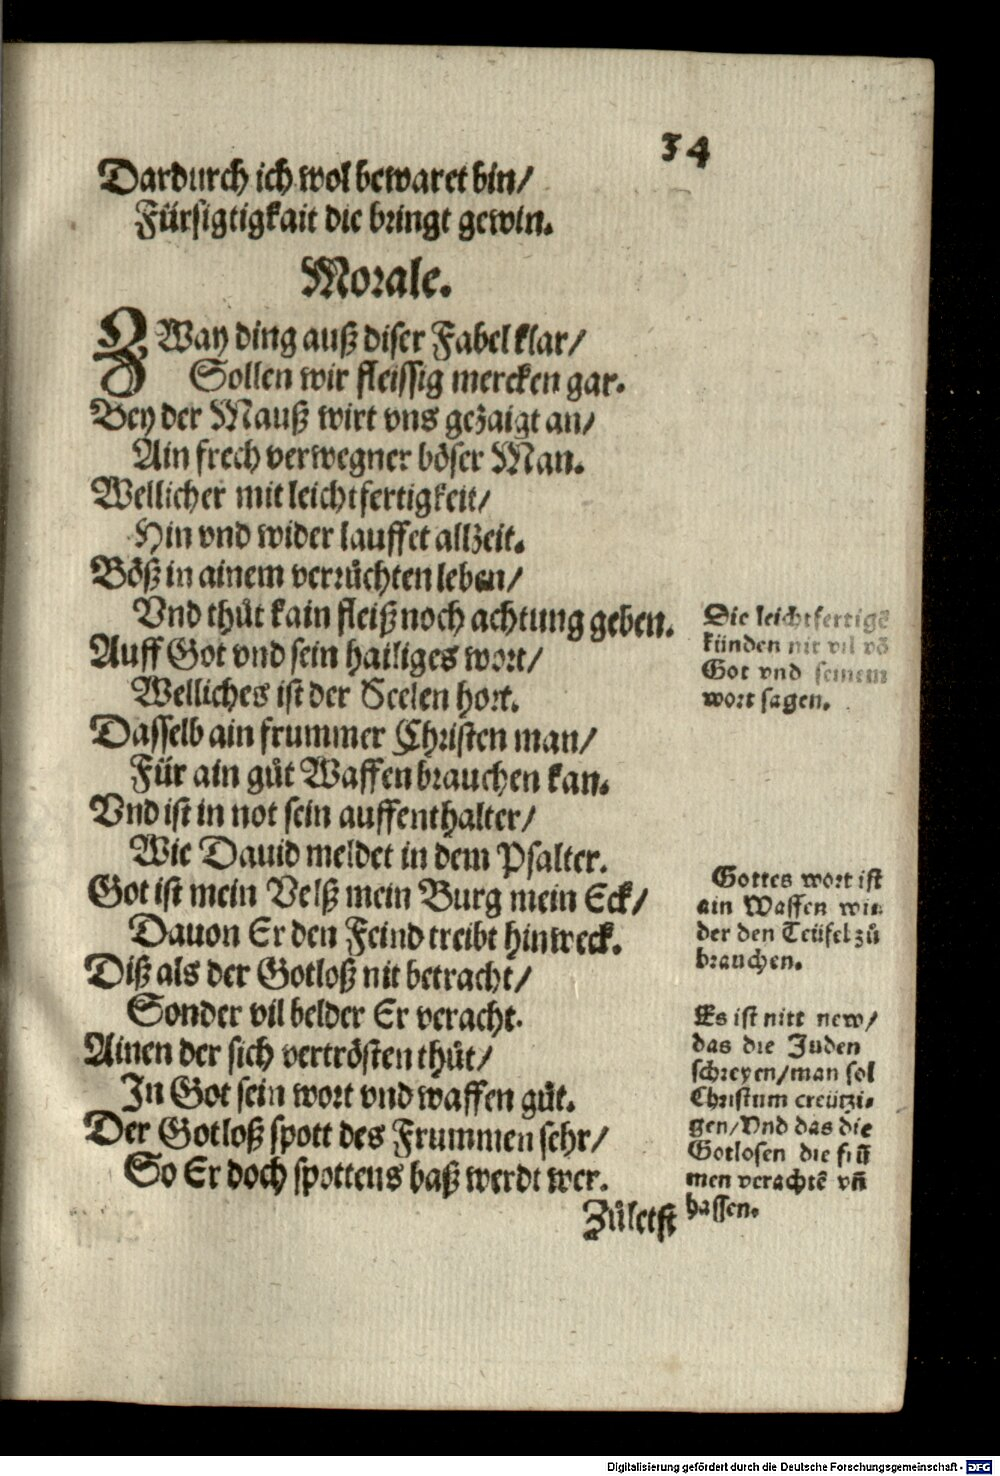 34
Dardurch ich wol bewaret bin/
Fürsigtigkait die bringt gewin.
Morale.
ZWay ding auß diser Fabel klar/
Sollen wir fleissig mercken gar.
Bey der Mauß wirt vns gezaigt an/
Ain frech verwegner böser Man.
Wellicher mit leichtfertigkeit/
Hin vnd wider lauffet allzeit.
Böß in ainem verrůchten leben/
Vnd thůt kain fleiß noch achtung geben.
Auff Got vnd sein hailiges wort/
Welliches ist der Seelen hort.
Dasselb ain frummer Christen man/
Für ain gůt Waffen brauchen kan.
Vnd ist in not sein auffenthalter/
Wie Dauid meldet in dem Psalter.
Got ist mein Velß mein Burg mein Eck/
Dauon Er den Feind treibt hinweck.
Diß als der Gotloß nit betracht/
Sonder vil belder Er veracht.
Ainen der sich vertrösten thůt/
In Got sein wort vnd waffen gůt.
Der Gotloß spott des Frummen sehr/
So Er doch spottens baß werdt wer.
Zůletst
Die leichtfertigē
künden nit vil vō
Got vnd seinem
wort sagen.
Gottes wort ist
ain Waffen wi=
der den Teüfel zů
brauchen.
Es ist nitt new/
das die Juden
schreyen/man sol
Christum creützi=
gen/Vnd das die
Gotlosen die frū
men verachtē vñ
hassen.
Digitalisierung gefördert durch die Deutsche Forschungsgemeinschaft - DFG